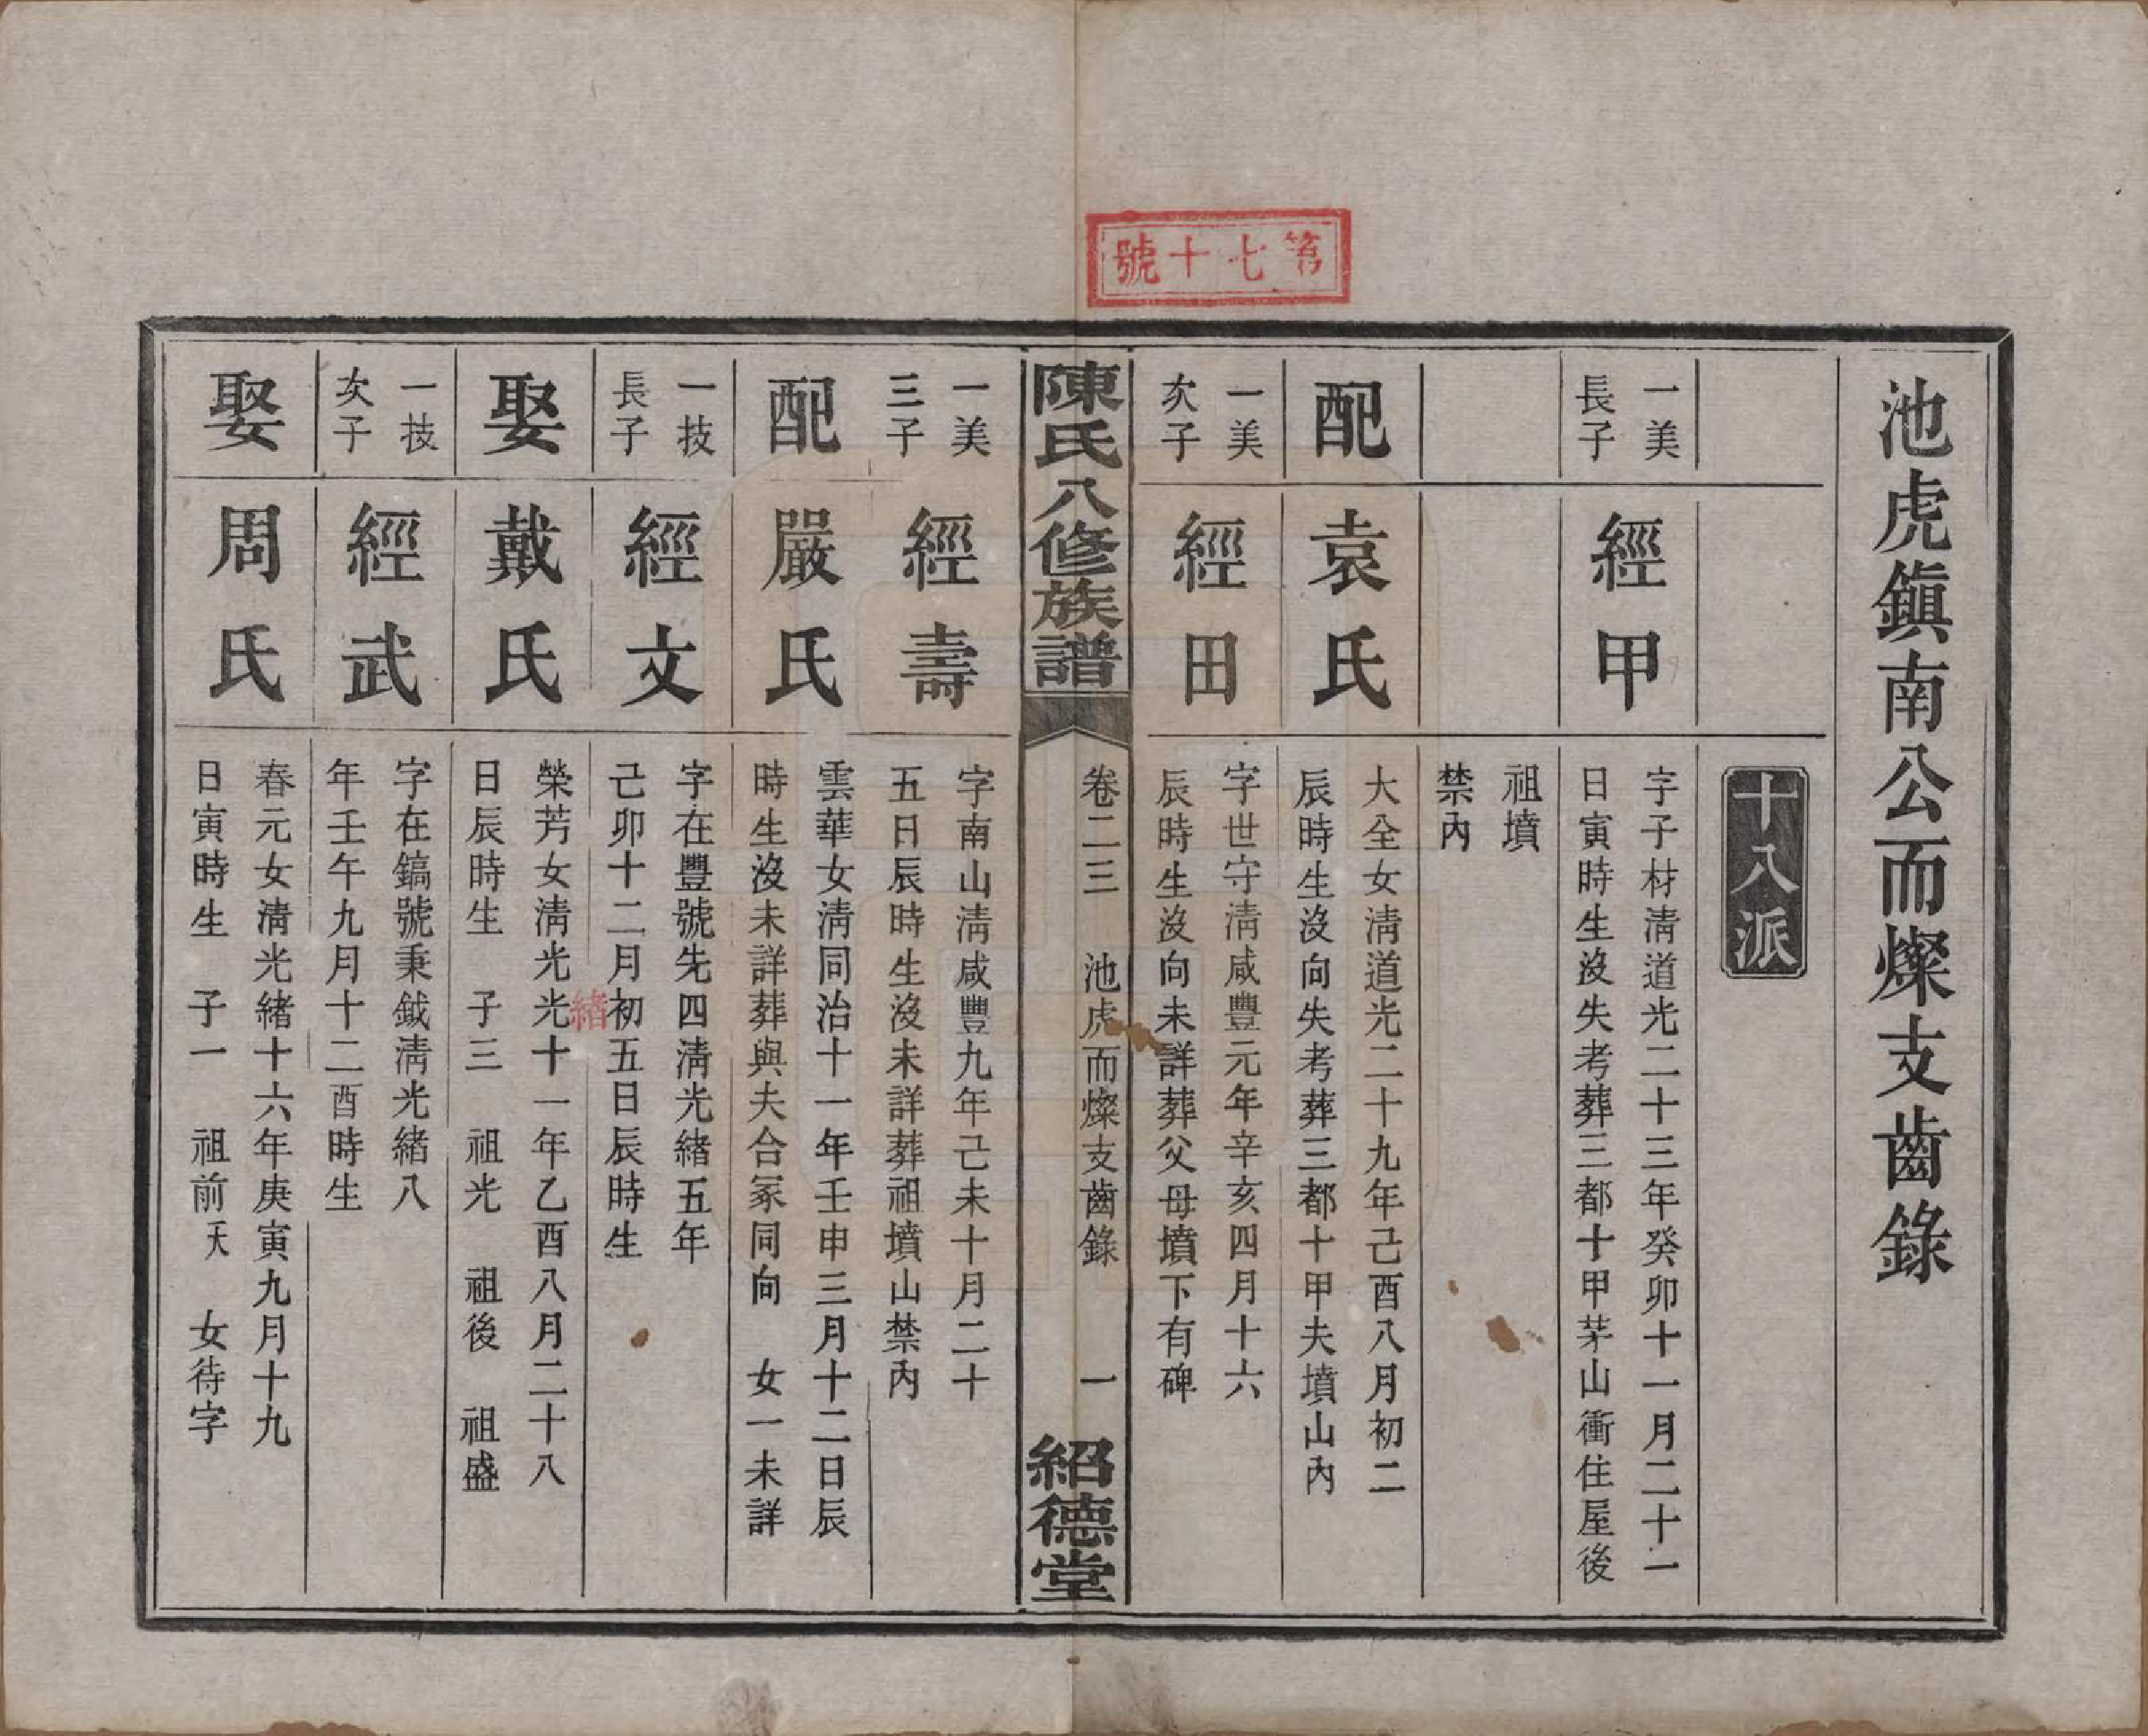 第七十號
池虎鎭南公而燦支齒錄
十八派
一美
長子
經甲
字子材淸道光二十三年癸卯十一月二十一
日寅時生沒失考葬三都十甲茅山衝住屋後
祖墳
禁內
配
袁氏
大全女淸道光二十九年己酉八月初二
辰時生沒向失考葬三都十甲夫墳山內
一美
次子
經田
字世守淸咸豐元年辛亥四月十六
辰時生沒向未詳葬父母墳下有碑
陳氏八修族譜
卷二三 池虎而燦支齒錄 一
紹德堂
一美
三子
經壽
字南山淸咸豐九年己未十月二十
五日辰時生沒未詳葬祖墳山禁內
配
嚴氏
雲華女淸同治十一年壬申三月十二日辰
時生沒未詳葬與夫合冢同向 女一未詳
一技
長子
經文
字在豐號先四淸光緒五年
己卯十二月初五日辰時生
娶
戴氏
榮芳女淸光光十一年乙酉八月二十八
緒
日辰時生 子三 祖光 祖後 祖盛
一技
次子
經武
字在鎬號秉鉞淸光緒八
年壬午九月十二酉時生
娶
周氏
春元女淸光緒十六年庚寅九月十九
日寅時生 子一 祖前夭 女待字